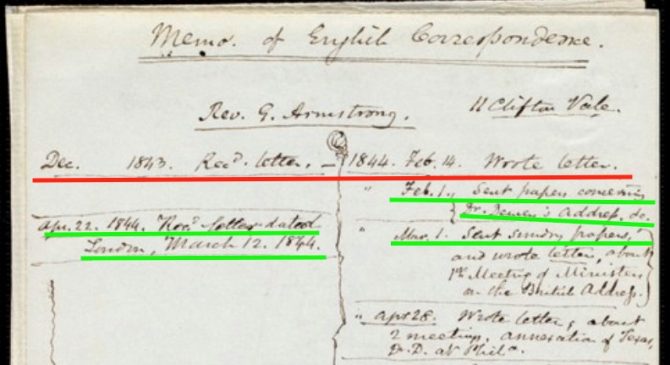 Memo. of English Correspondence.
Rev. G. Armstrong. 11 Clifton Vale.
Dec. 1843. Recd. letter. — 1844. Feb. 14. Wrote letter.
" Feb. 1., Sent papers concerning
Dr. Dewey's Address, &c.
Apr. 22. 1844. Recd. letter dated
London, March 12. 1844.
" Mar. 1. Sent sundry papers,
and wrote letter, about
1st Meeting of Ministers
on the British Address.
" Apr 28. Wrote letter, about
2 meetings, annexation of Texas,
Dr. D. at Phila.